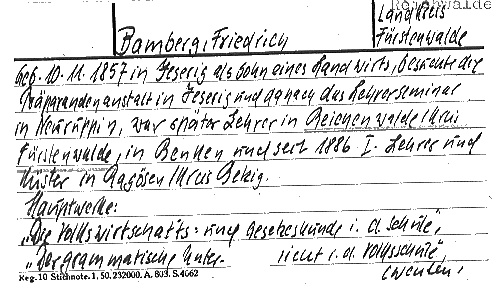 Reichenwalde
Landkreis
Fürstenwalde
Bamberg, Friedrich
geb. 10. 11. 1857 in Jeserig als Sohn eines Landwirts, besuchte die
Präparandenanstalt in Jeserig und danach das Lehrerseminar
in Neuruppin, war später Lehrer in Reichenwalde Kreis
Fürstenwalde, in Benken und seit 1886 I. Lehrer und
Küster in Ragösen Kreis Belzig.
Hauptwerke:
„Die Volkswirtschafts- und Gesetzeskunde i. d. Schule",
„Der grammatische Unter-
richt i. d. Volksschule",
Reg. 10 Stichnote. 1, 50. 232000. A. 803. S. 4062